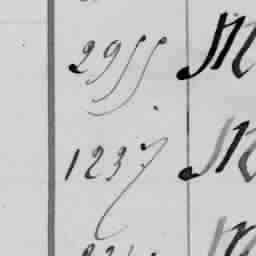 2955 M
1237 M